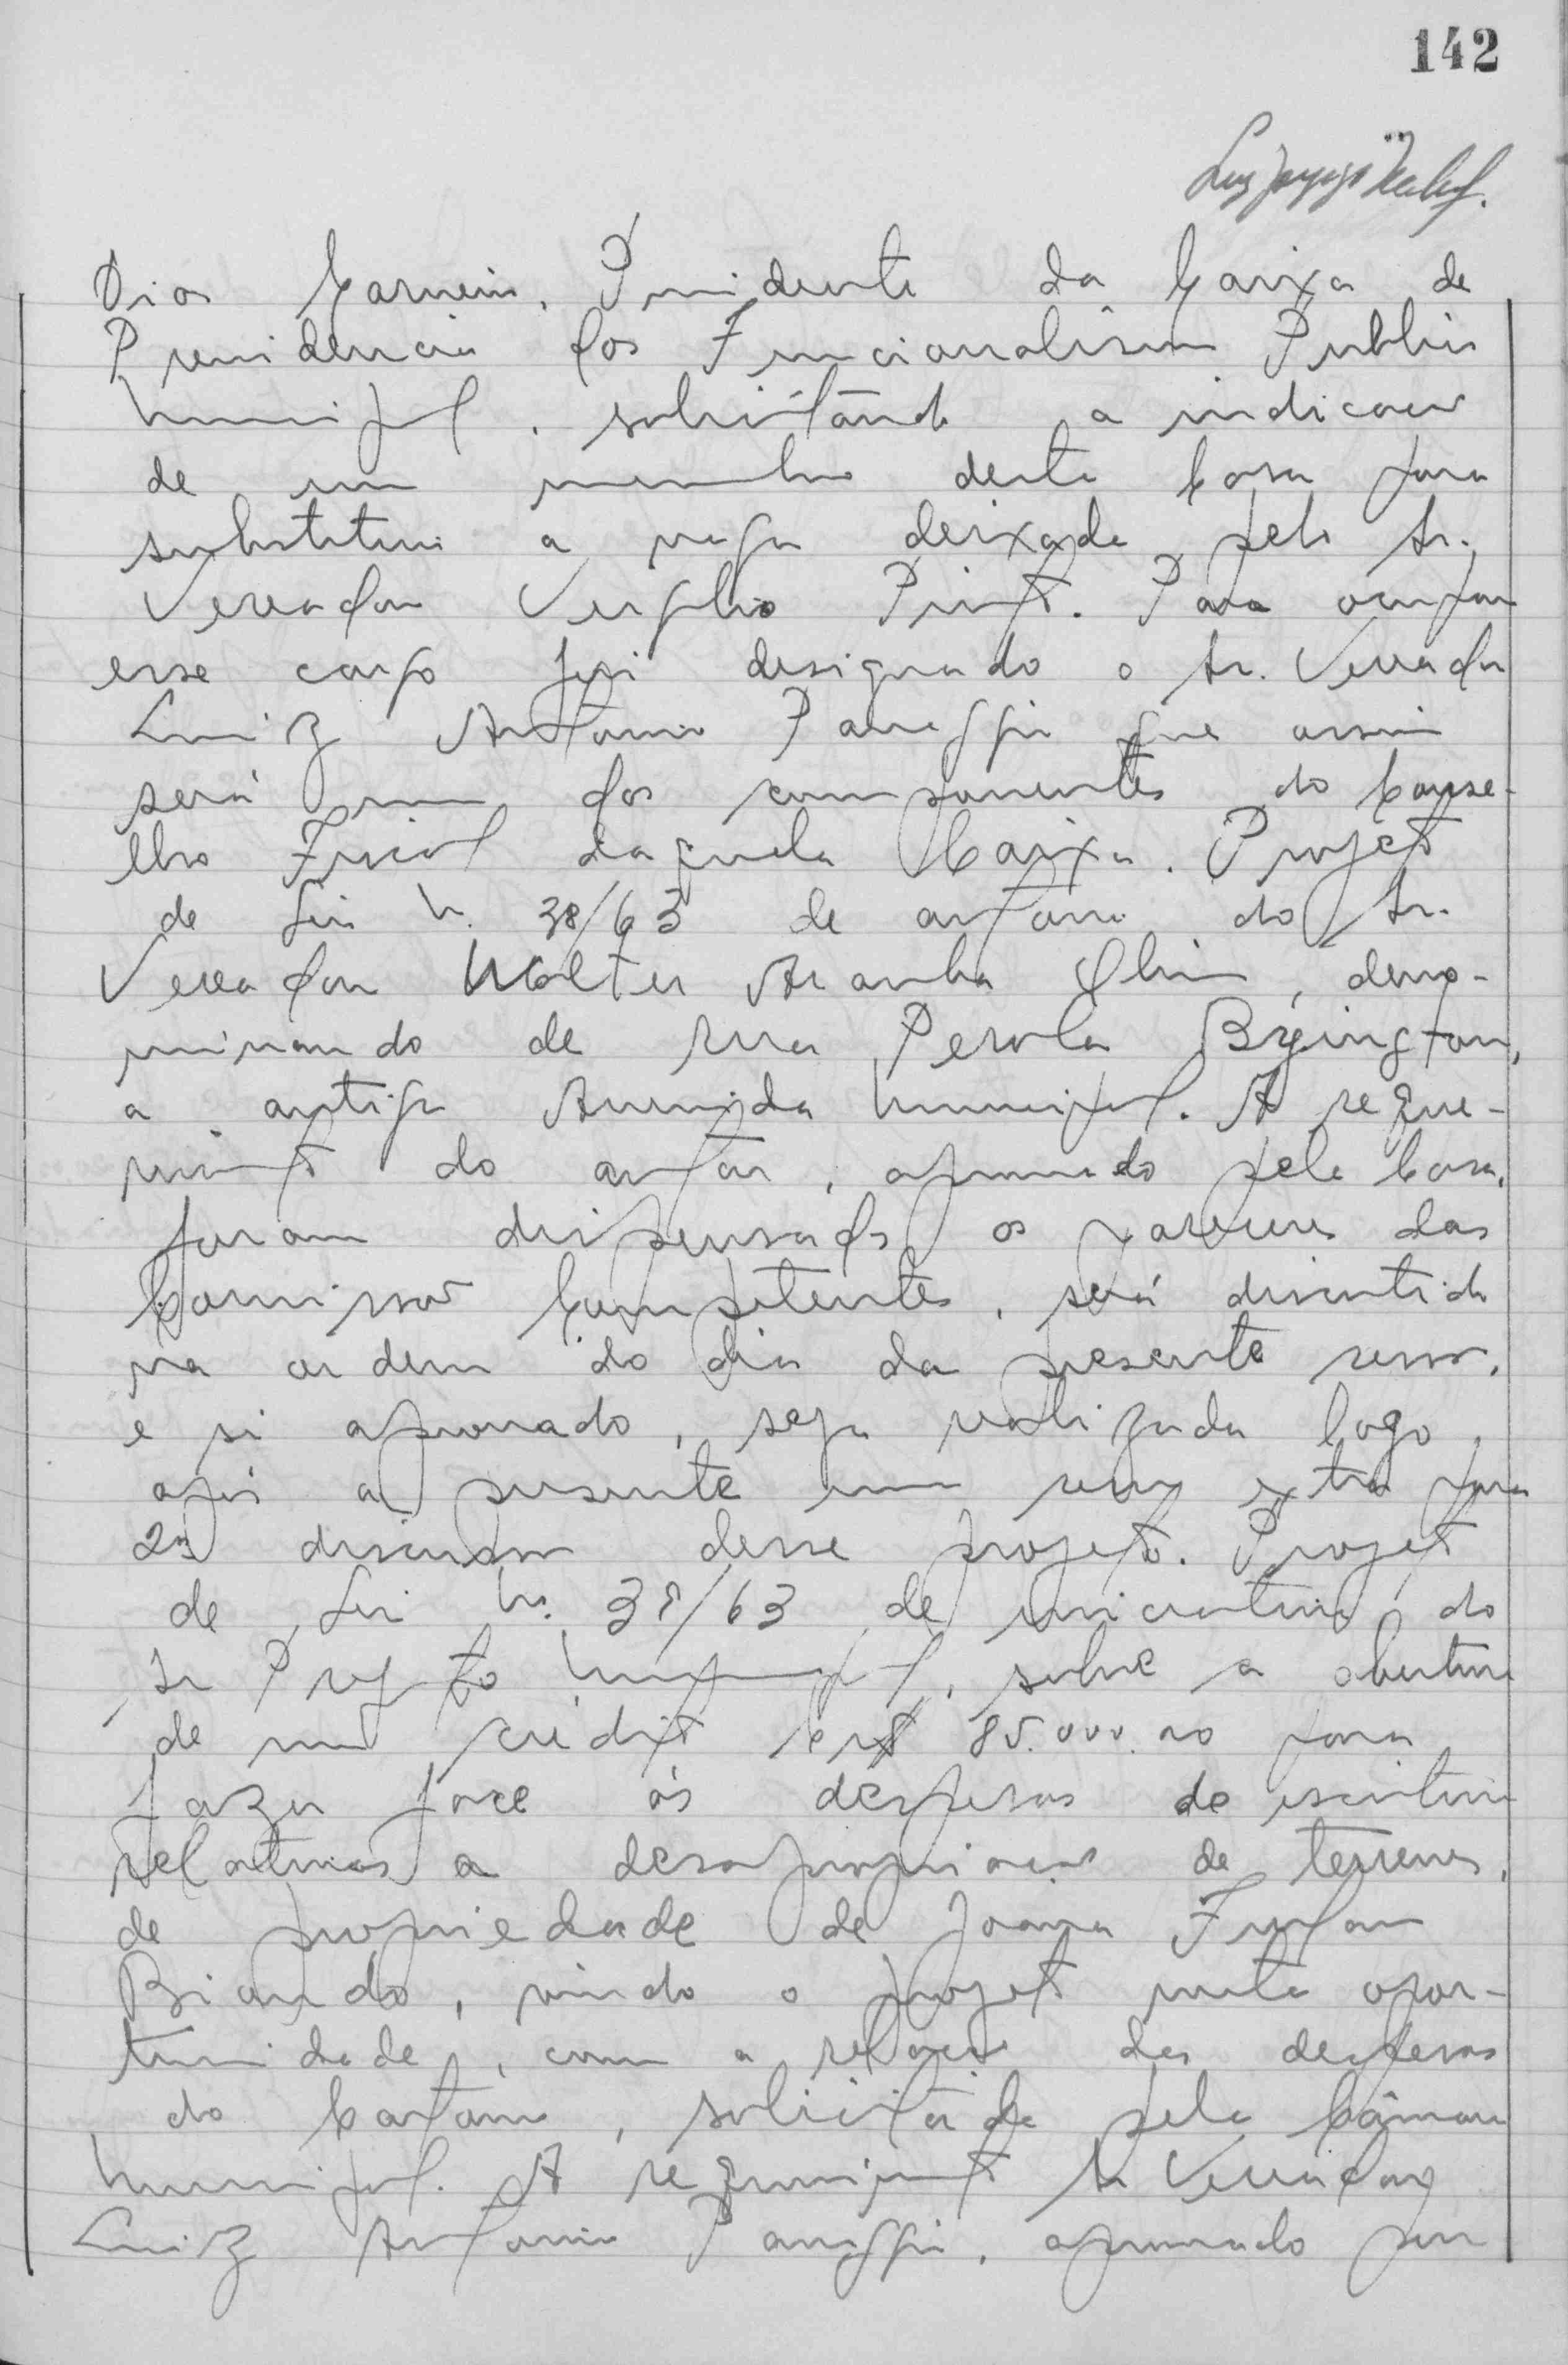 142
Dias Carneiro, Presidente da Caixa de
Previdencia dos Funcionalismo Publico
Municipal, solicitando a indicacao
de um membro desta Casa para
substituir a vaga deixada pelo Sr.
Vereador Virgilio Pinto. Para ocupar
esse cargo foi designado o Sr. Vereador
Luiz Antonio que assim
será um dos componentes do Conse-
lho Fiscal daquela Caixa. Projeto
de Lei N. 38/63 de autoria do Sr.
Vereador Walter Aranha , deno-
minando de rua Perola Byington,
a antiga Avenida Municipal. A reque-
rimento do autor, aprovado pela Casa,
foram dispensados os pareceres das
Comissões Competentes, será discutido
na ordem do dia da presente sessão,
e si aprovado, seja realizada logo
após a presente uma sessão extra para
2ª discussão desse projeto. Projeto
de Lei N. 39/63 de iniciativa do
Sr Prefeito Municipal, sobre a abertura
de um crédito cr$ 85.000.00 para
fazer face ás despesas de escritura
relativas a desapropriacao de terrenos,
de propriedade de Joana
, vindo o projeto nesta opor-
tunidade, com a relação das despesas
do Cartorio, solicitada pela Câmara
Municipal. A requerimento Sr Vereador
Luiz Antonio , aprovado por